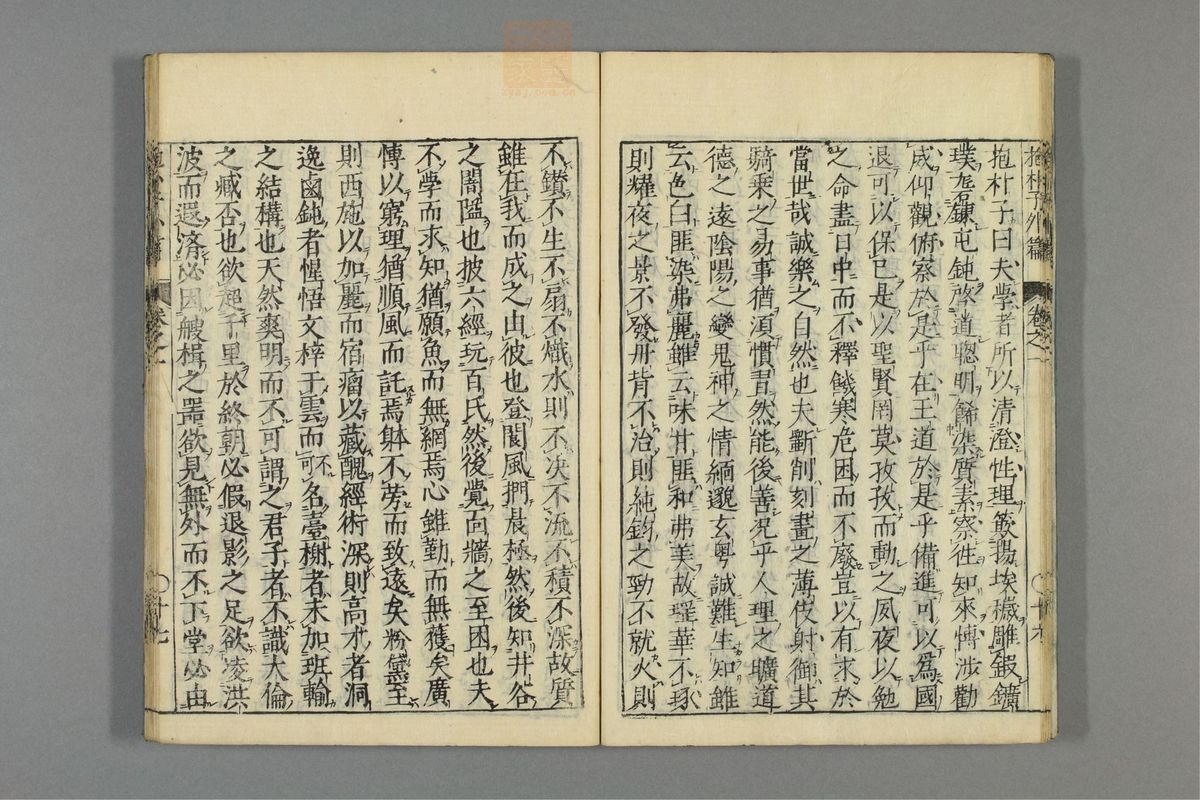 抱朴子外篇 卷之一
抱朴子曰夫學者所以清澄性理簸揚埃穢雕鍛鑛
璞礱鍊屯鈍啓道聰明餙染質素察徃知來博涉勸
戒仰觀俯察於是乎在王道於是乎備進可以爲國
退可以保已是以聖賢罔莫孜孜而動之夙夜以勉
之命盡日中而不釋饑寒危困而不廢豈以有求於
當世哉誠樂之自然也夫斵削刻畫之薄伎射御其
騎乗之易事猶湏慣習然能後善况乎人理之曠道
德之遠陰陽之變鬼神之情緬邈玄奥誠難生知雖
云色白匪染弗麗雖云味甘匪和弗美故瑤華不琢
則耀夜之景不發丹青不治則純鈎之勁不就火則
不鑚不生不扇不熾水則不决不流不積不深故質
雖在我而成之由彼也登閬風捫晨極然後知井谷
之闇隘也披六經玩百氏然後覺面牆之至困也夫
不學而求知猶願魚而無網焉心雖勤而無獲矣廣
博以窮理猶順風而託焉躰不勞而致遠矣粉黛至
則西施以加麗而宿瘤以藏醜經術深則高才者洞
逸鹵鈍者惺悟文梓干雲而不可名臺榭者未加班輸
之結構也天然爽明而不可謂之君子者不識大倫
之臧否也欲超千里於終朝必假退影之足欲凌洪
波而遐濟必因艘楫之噐欲見無外而不下堂必由